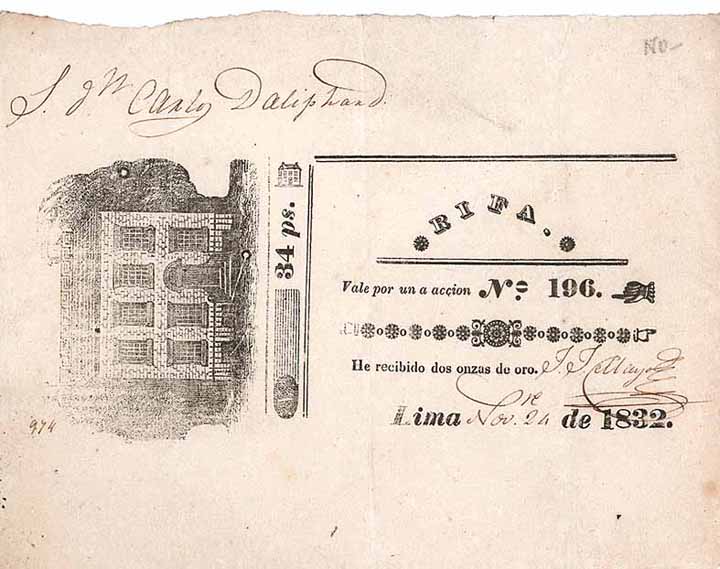 No
S. Dn Carlos Daliphard.
34 ps.
RIFA.
Vale por un a accion Nº 196.
He recibido dos onzas de oro.
Lima Novre 24 de 1832.
974